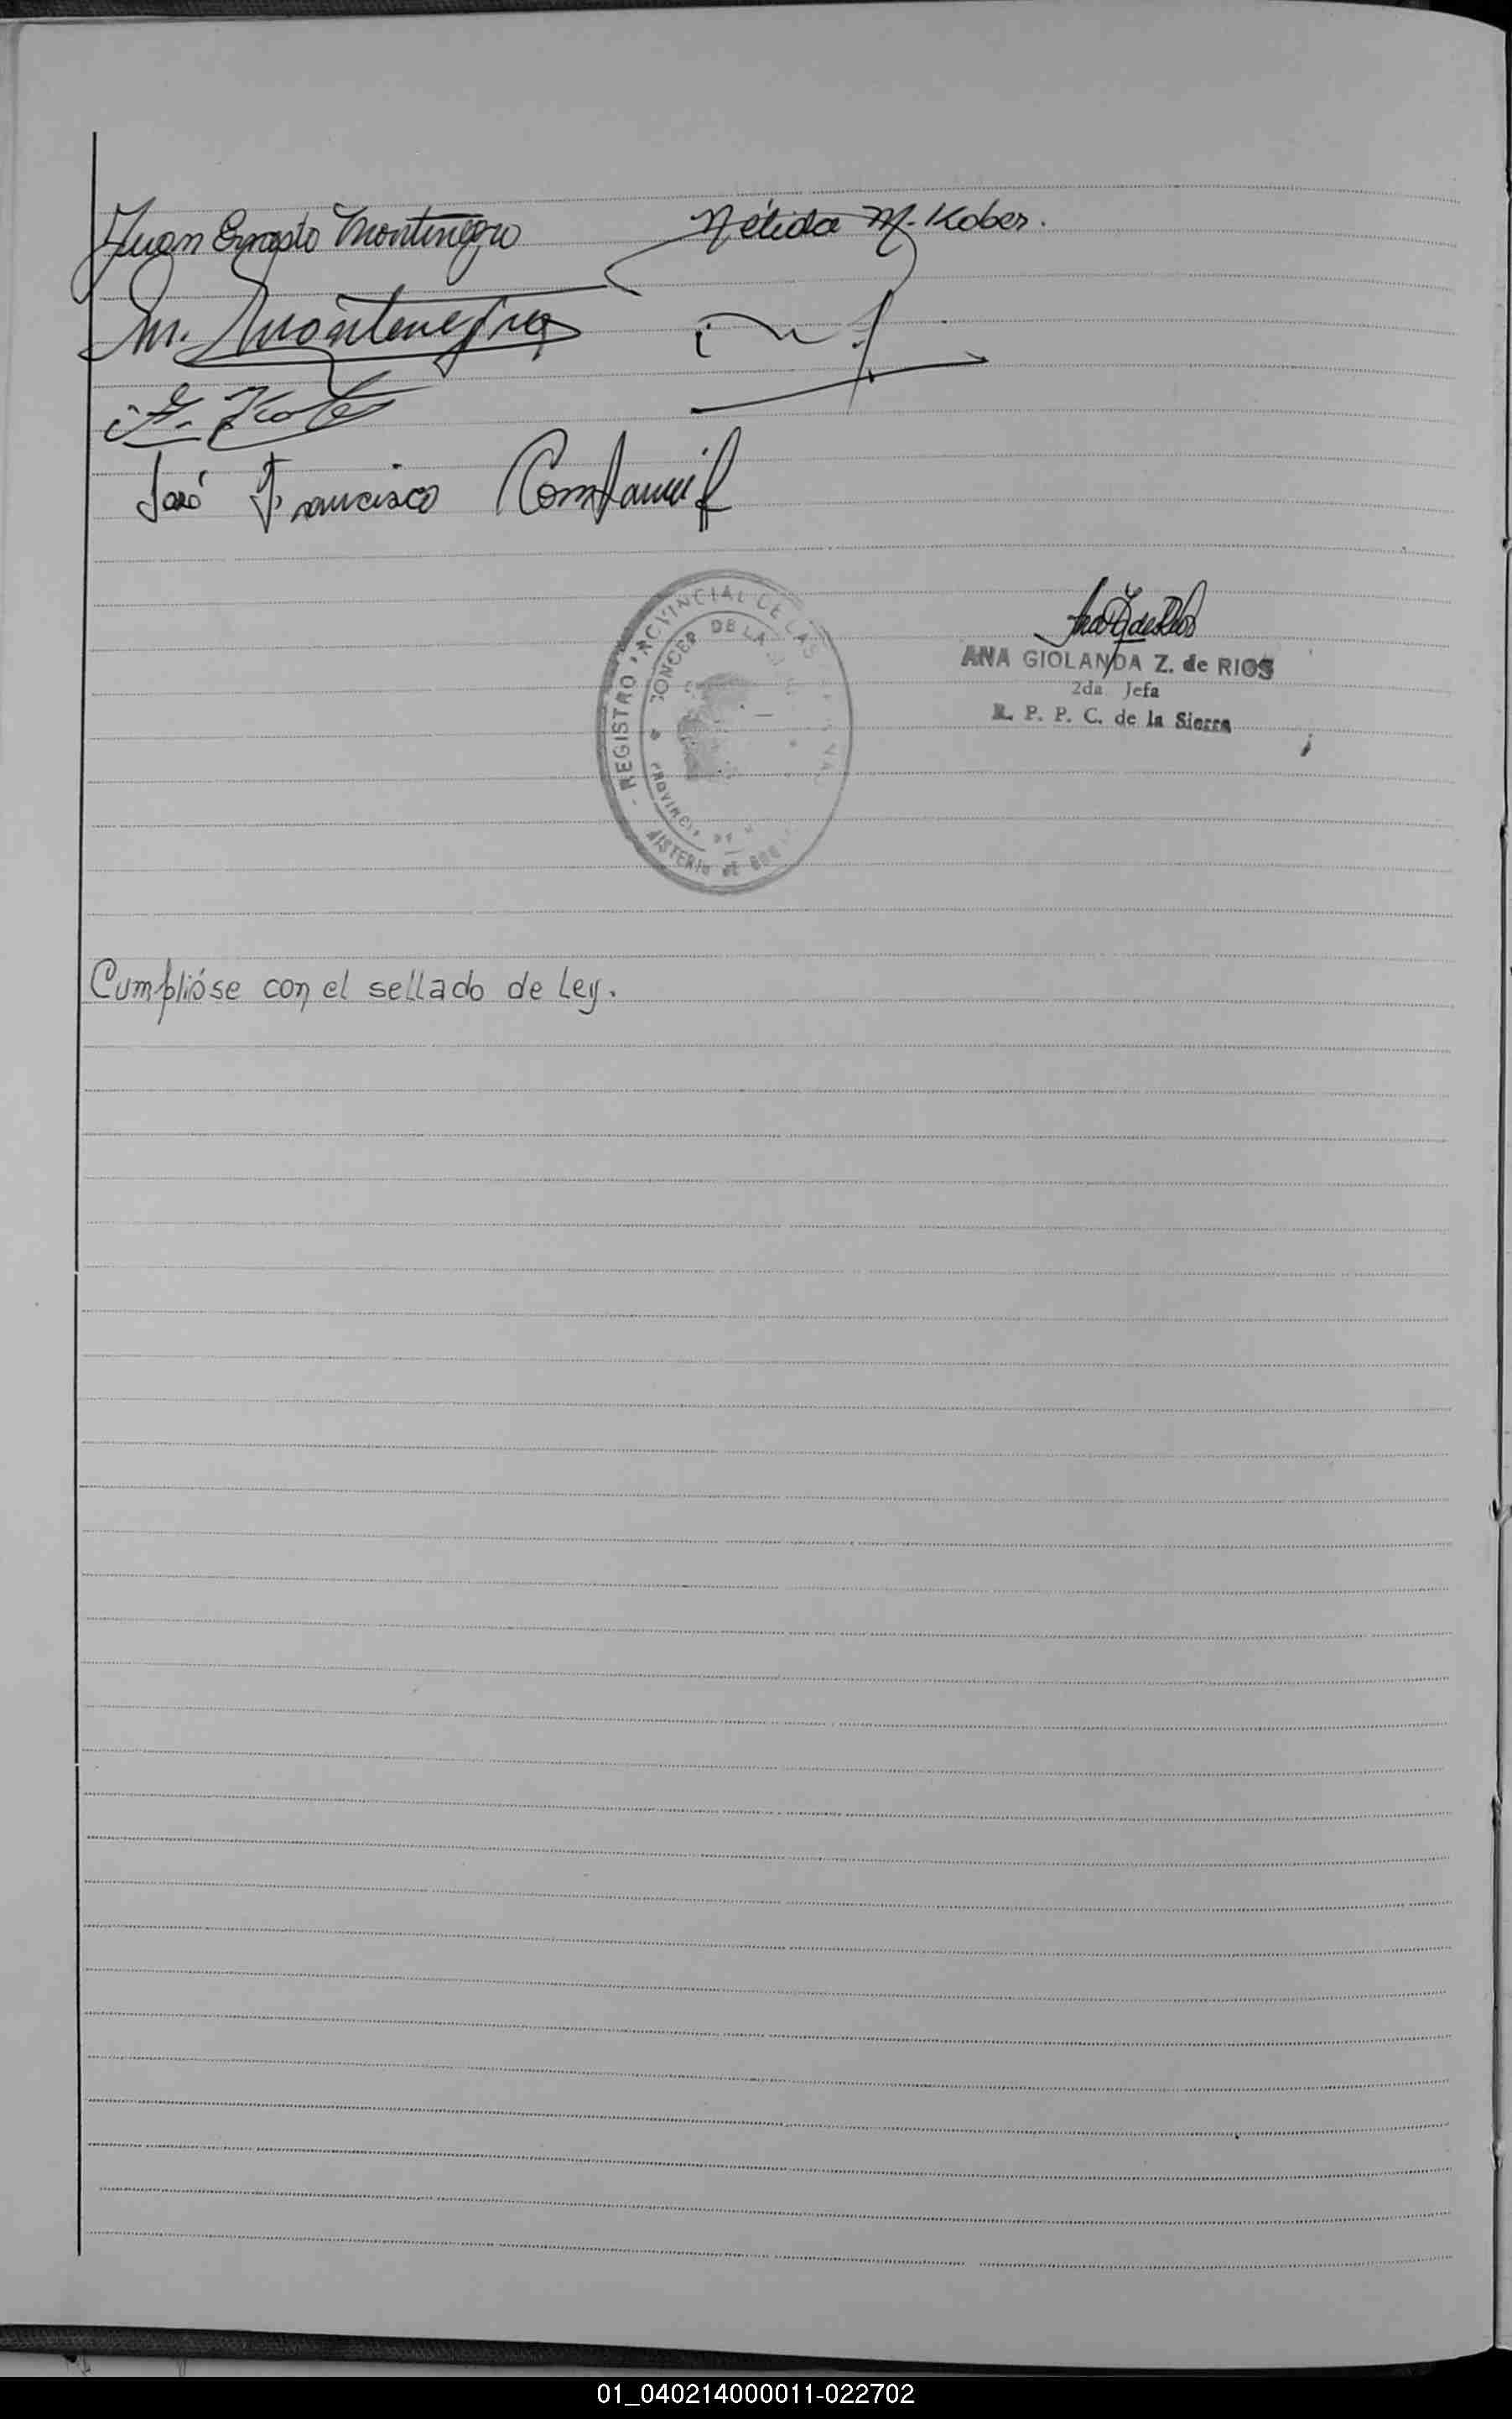 Juan Ernesto Montenegro Nélida M. Kober.
M. Montenegro
José Francisco
REGISTRO PROVINCIAL DE LAS
CONCEP. DE LA
PROVINCIA DE
ANA GIOLANDA Z. de RIOS
2da Jefa
R. P. P. C. de la Sierra
Cumplióse con el sellado de Ley.
01_040214000011-022702